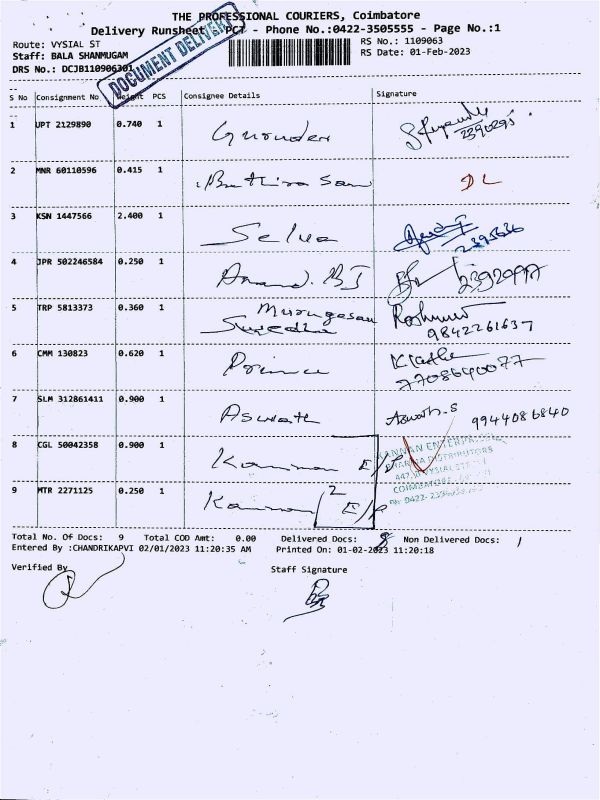 THE PROFESSIONAL COURIERS, Coimbatore
Delivery Runsheet & PCT - Phone No.:0422-3505555 - Page No.:1
DOCUMENT DELIVERY
Route: VYSIAL ST
RS No.: 1109063
Staff: BALA SHANMUGAM
RS Date: 01-Feb-2023
DRS No.: DCJB110906301
S No Consignment No Weight PCS Consignee Details Signature
1 UPT 2129890 0.740 1
2390295
2 MNR 60110596 0.415 1
DL
3 KSN 1447566 2.400 1 Selva
2395636
4 JPR 502246584 0.250 1 Anand. BJ
2392097
5 TRP 5813373 0.360 1 Murugesan
9842261637
6 CMM 130823 0.620 1 Prince
7708640077
7 SLM 312861411 0.900 1 Aswath Aswath.S 9944086840
8 CGL 50042358 0.900 1 Kannan E/P
KANNAN ENTERPRISES
PHARMA DISTRIBUTORS
VYSIAL STREET
COIMBATORE
Ph: 0422-
9 MTR 2271125 0.250 1 Kannan E/P
2
Total No. Of Docs: 9 Total COD Amt: 0.00 Delivered Docs: 8 Non Delivered Docs: 1
Entered By :CHANDRIKAPVI 02/01/2023 11:20:35 AM Printed On: 01-02-2023 11:20:18
Verified By Staff Signature